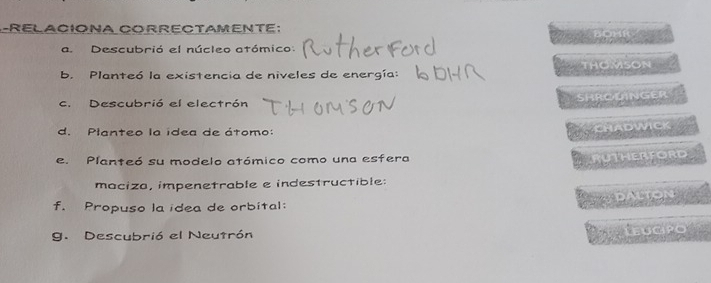 .-RELACIONA CORRECTAMENTE:
BOHR
a. Descubrió el núcleo atómico: Rutherford
THOMSON
b. Planteó la existencia de niveles de energía: bOHR
SHRODINGER
c. Descubrió el electrón THOMSON
CHADWICK
d. Planteo la idea de átomo:
RUTHERFORD
e. Planteó su modelo atómico como una esfera
maciza, impenetrable e indestructible:
DALTON
f. Propuso la idea de orbital:
LEUCIPO
g. Descubrió el Neutrón